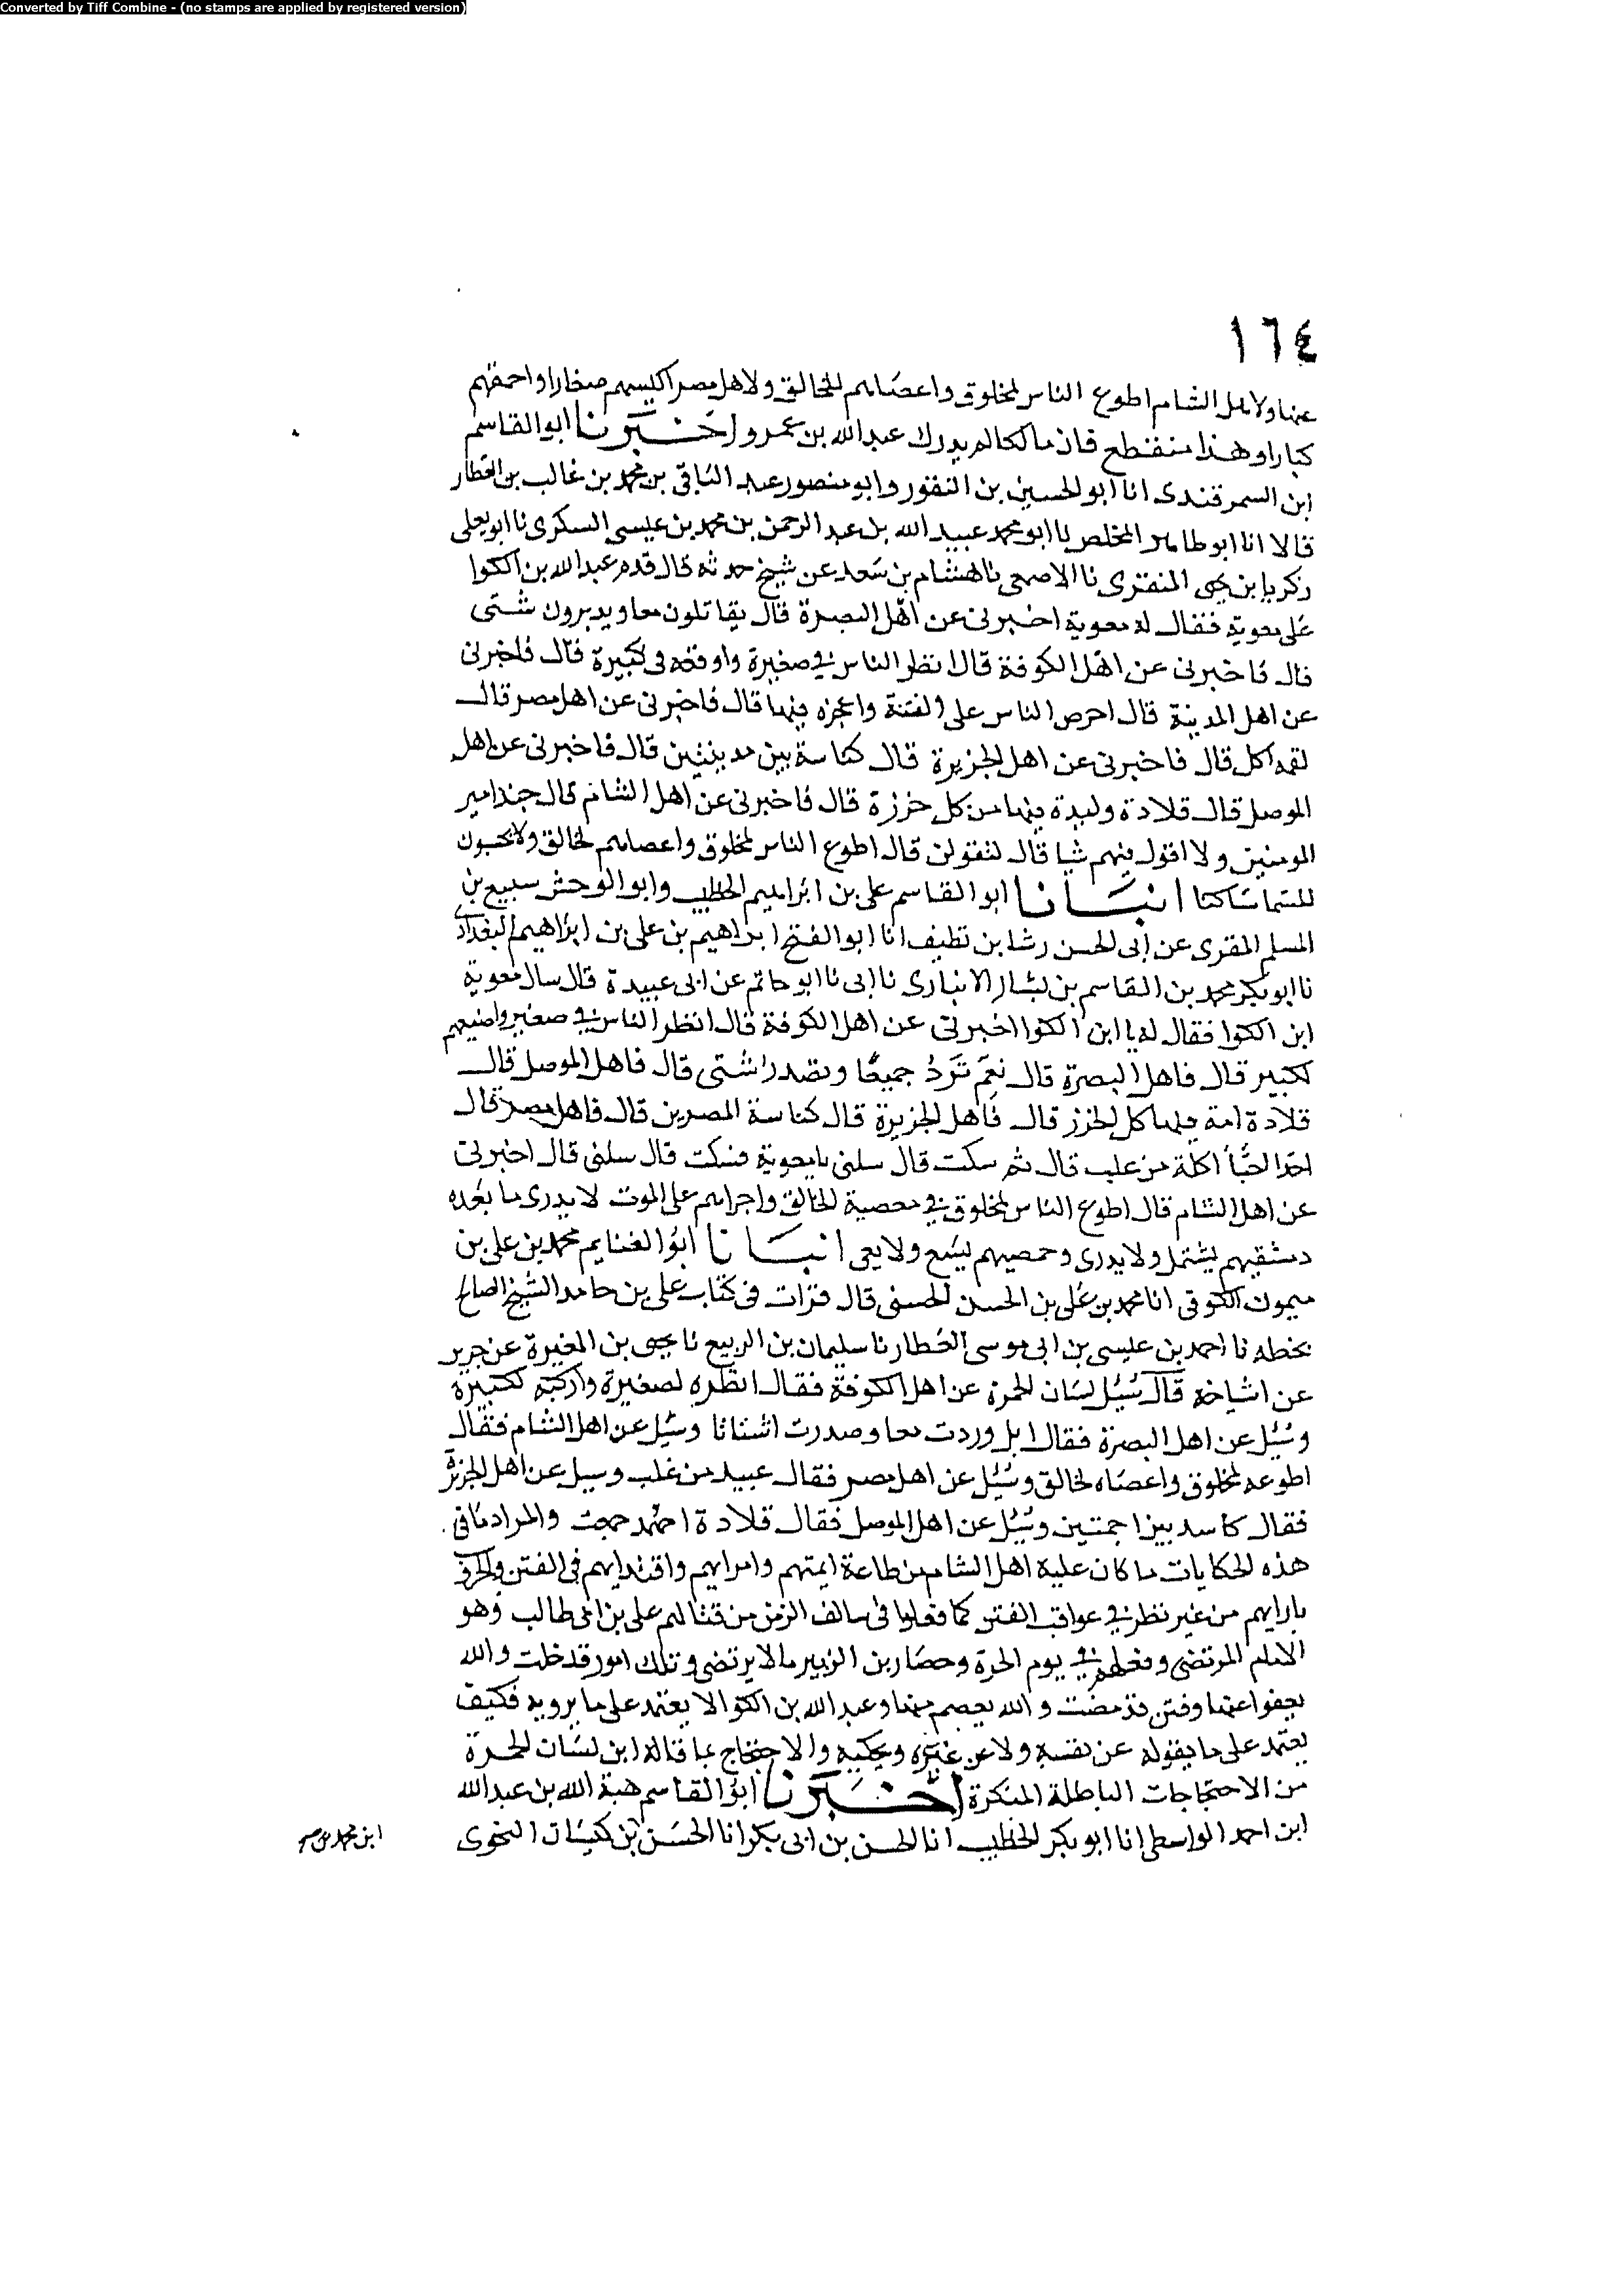 Converted by Tiff Combine - (no stamps are applied by registered version)
١٦٤
عنها ولاهل الشام اطوع الناس لمخلوق واعصاهم للخالق ولاهل مصر اكيسهم صغارا واحمقهم
كبارا وهذا منقطع فان مالكا لم يدرك عبد الله بن عمرو اخبرنا ابو القاسم
ابن السمرقندى انا ابو الحسين بن النقور وابو منصور عبد الباقى بن محمد بن غالب بن العطار
قالا انا ابو طاهر المخلص نا ابو محمد عبيد الله بن عبد الرحمن بن محمد بن عيسى السكرى نا ابو يعلى
زكريا بن يحيى المنقرى نا الاصمعى نا هشام بن سعد عن شيخ حدثه قال قدم عبد الله بن الكوا
على معوية فقال له معوية اخبرنى عن اهل البصرة قال يقاتلون معا ويدبرون شتى
قال فاخبرنى عن اهل الكوفة قال انظر الناس في صغيرة واوقعه فى كبيرة قال فاخبرنى
عن اهل المدينة قال احرص الناس على الفتنة واعجزه فيها قال فاخبرنى عن اهل مصر قال
لقمه اكل قال فاخبرنى عن اهل الجزيرة قال كناسة بين مدينتين قال فاخبرنى عن اهل
الموصل قال قلادة وليدة فيها من كل خرزة قال فاخبرنى عن اهل الشام قال جند امير
المومنين ولا اقول فيهم شيا قال لتقولن قال اطوع الناس لمخلوق واعصاهم لخالق ولا يحسبون
للسما ساكنا انبانا ابو القاسم على بن ابراهيم الخطيب وابو الوحش سبيع بن
المسلم المقرى عن ابى الحسن رشا بن نظيف انا ابو الفتح ابراهيم بن على بن ابراهيم البغدادى
نا ابو بكر محمد بن القاسم بن بشار الانبارى نا ابى نا ابو حاتم عن ابى عبيدة قال سال معوية
ابن الكوا فقال له يا ابن الكوا اخبرنى عن اهل الكوفة قال انظر الناس في صغير واضيعهم
لكبير قال فاهل البصرة قال نعم ترد جميعا وتصدر شتى قال فاهل الموصل قال
قلادة امة فيها كل الخرز قال فاهل الجزيرة قال كناسة المصرين قال فاهل مصر قال
اكلة من غلب قال ثم سكت قال سلنى يا معوية فسكت قال سلنى قال اخبرنى
عن اهل الشام قال اطوع الناس لمخلوق في معصية الخالق واجراهم على الموت لا يدرى ما بعده
دمشقيهم يشتمل ولا يدرى وحمصيهم يسمع ولا يعى انبانا ابو الغنايم محمد بن على بن
ميمون الكوفى انا محمد بن على بن الحسن الحسنى قال قرات فى كتاب على بن حامد الشيخ الصالح
بخطه نا احمد بن عيسى بن ابى موسى العطار نا سليمان بن الربيع نا يحيى بن المغيرة عن جرير
عن اشياخه قال سئل لسان الحمرة عن اهل الكوفة فقال انظره لصغيرة واركبه لكبيرة
وسئل عن اهل البصرة فقال ابل وردت معا وصدرت اشتاتا وسئل عن اهل الشام فقال
اطوعه لمخلوق واعصاه لخالق وسئل عن اهل مصر فقال عبيد من غلب وسيل عن اهل الجزيرة
فقال كاسد بين اجمتين وسئل عن اهل الموصل فقال قلادة والمراد مافى
هذه الحكايات ما كان عليه اهل الشام من طاعة ايمتهم وامرايهم واقتدايهم فى الفتن والحرف
بارايهم من غير نظر في عواقب الفتن كما فعلوا فى سالف الزمن من قتالهم على بن ابى طالب وهو
الامام المرتضى وفعلهم في يوم الحرة وحصار بن الزبير ما لا يرتضى وتلك امور قد خلت والله
يعفوا عنها وفتن قد مضت والله يعصم منها وعبد الله بن الكوا لا يعتمد على ما يرويه فكيف
يعتمد على ما يقوله عن نفسه ولا عن غيره ويحكيه والاحتجاج بما قاله ابن لسان الحمرة
من الاحتجاجات الباطلة المنكرة اخبرنا ابو القاسم هبة الله بن عبد الله
ابن احمد الواسطى انا ابو بكر الخطيب انا الحسن بن ابى بكر انا الحسن بن كيسان النحوى
ابن محمد بن